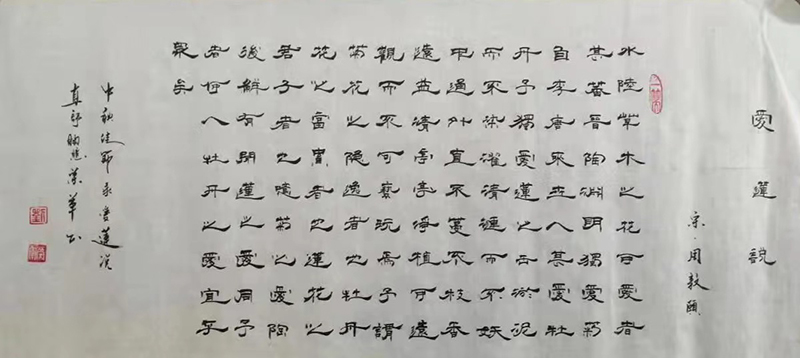 愛蓮說
宋·周敦頤
水陸草木之花可愛者
甚蕃晉陶淵明獨愛菊
自李唐來世人甚愛牡
丹予獨愛蓮之出淤泥
而不染濯清漣而不妖
中通外直不蔓不枝香
遠益清亭亭淨植可遠
觀而不可褻玩焉予謂
菊花之隱逸者也牡丹
花之富貴者也蓮花之
君子者也噫菊之愛陶
後鮮有聞蓮之愛同予
者何人牡丹之愛宜乎
衆矣
中秋佳節录愛蓮说